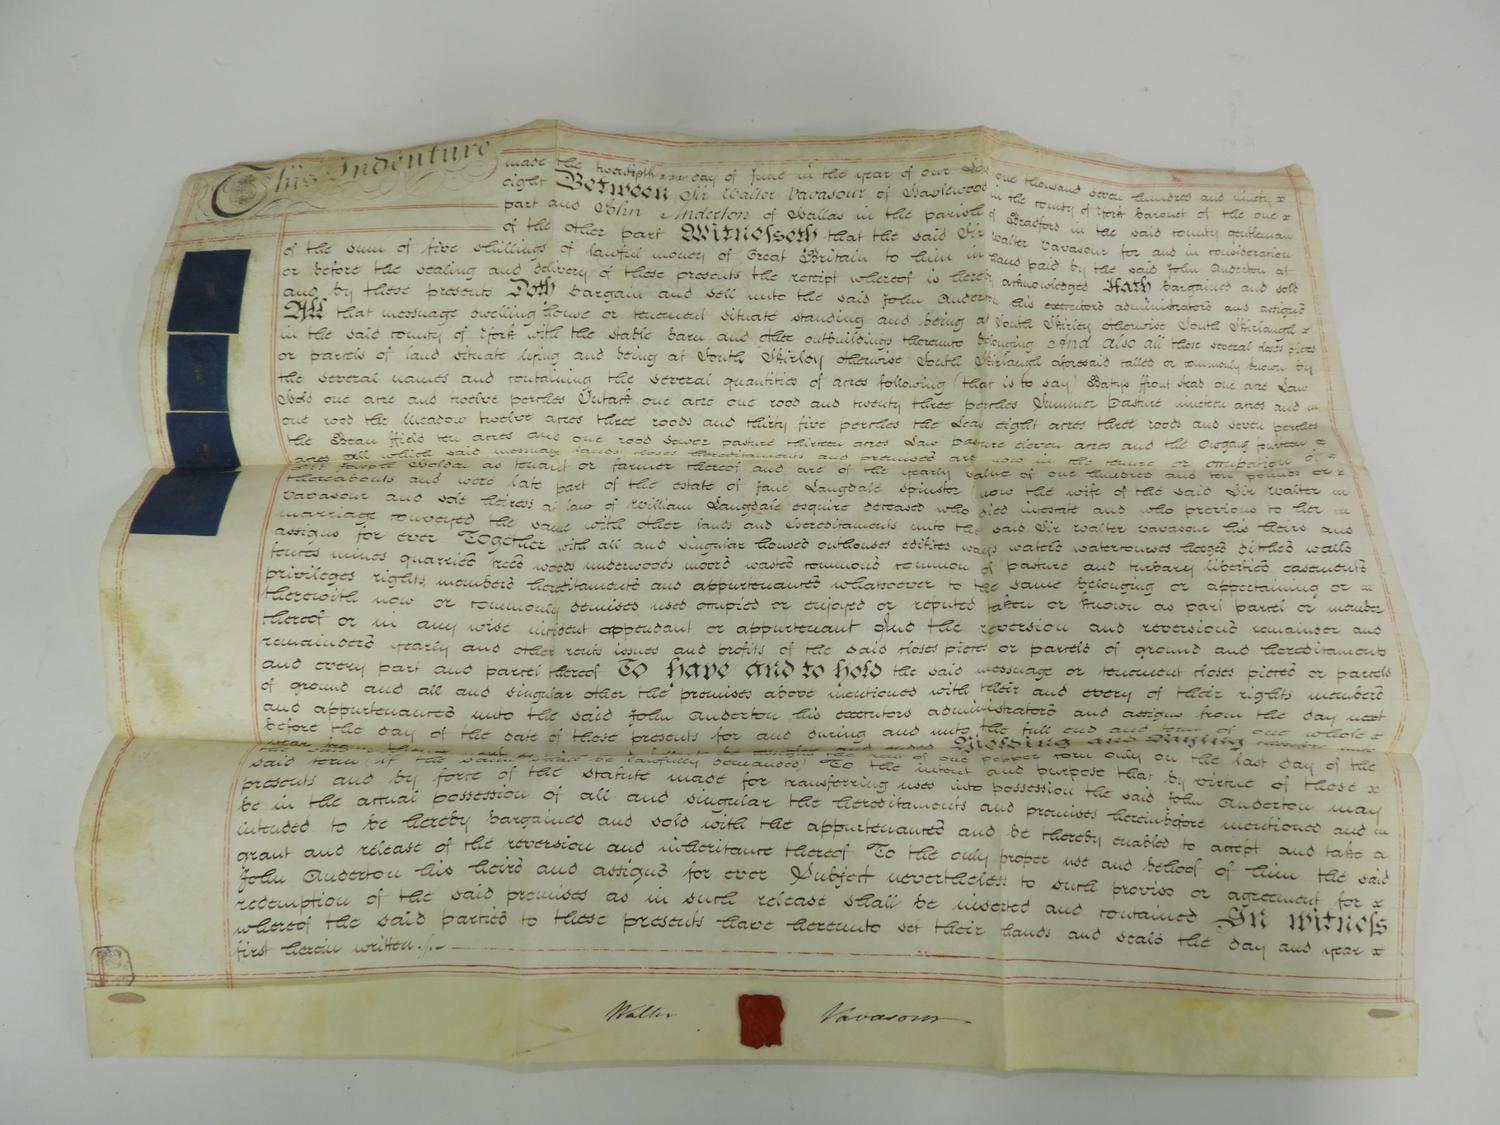 This Indenture made the twentieth day of June in the year of our Lord one thousand seven hundred and ninety x
eight Between Sir Walter Vavasour of Haslewood in the county of York baronet of the one x
part and John Anderton of Hallas in the parish of Bradford in the said county gentleman
of the other part Witnesseth that the said Sir Walter Vavasour for and in consideration
of the sum of five shillings of lawful money of Great Britain to him in hand paid by the said John Anderton at
or before the sealing and delivery of these presents the receipt whereof is hereby acknowledged Hath bargained and sold
and by these presents Doth bargain and sell unto the said John Anderton his executors administrators and assigns
All that messuage dwelling house or tenement situate standing and being at South Skirley otherwise South Skirlaugh x
in the said county of York with the stable barn and other outbuildings thereunto belonging And also all those several closes pieces
or parcels of land situate lying and being at South Skirley otherwise South Skirlaugh aforesaid called or commonly known by
the several names and containing the several quantities of acres following (that is to say) ffront stead one acre Law
one acre and twelve perches one acre one rood and twenty three perches Summer Pasture nineteen acres and
one rood the Meadow twelve acres three roods and thirty five perches the Leas eight acres three roods and seven perches
the Bean ffield ten acres and one rood pasture thirteen acres Law pasture eleven acres and the Oxgang fourteen x
acres all which said messuage lands closes hereditaments and premises are now in the tenure or occupation of x
Joseph as tenant or farmer thereof and are of the yearly value of one hundred and ten pounds or x
thereabouts and were late part of the estate of Jane Langdale spinster now the wife of the said Sir Walter
Vavasour and sole heiress at law of William Langdale esquire deceased who died intestate and who previous to her
marriage conveyed the same with other lands and hereditaments unto the said Sir Walter Vavasour his heirs and
assigns for ever Together with all and singular houses outhouses edifices ways waters watercourses hedges ditches walls
fences mines quarries trees woods underwoods moors wastes commons common of pasture and turbary liberties easements
privileges rights members hereditaments and appurtenances whatsoever to the same belonging or appertaining or
therewith now or commonly demised used occupied or enjoyed or reputed taken or known as part parcel or member
thereof or in any wise incident appendant or appurtenant And the reversion and reversions remainder and
remainders yearly and other rents issues and profits of the said closes pieces or parcels of ground and hereditaments
and every part and parcel thereof To have and to hold the said messuage or tenement closes pieces or parcels
of ground and all and singular other the premises above mentioned with their and every of their rights members
and appurtenances unto the said John Anderton his executors administrators and assigns from the day next
before the day of the date of these presents for and during and unto the full end and term of one whole x
year Yielding and Paying
said term (if the same shall be lawfully demanded) To the intent and purpose that by virtue of these x
presents and by force of the statute made for transferring uses into possession the said John Anderton may
be in the actual possession of all and singular the hereditaments and premises hereinbefore mentioned and
intended to be hereby bargained and sold with the appurtenances and be thereby enabled to accept and take a
grant and release of the reversion and inheritance thereof To the only proper use and behoof of him the said
John Anderton his heirs and assigns for ever Subject nevertheless to such proviso or agreement for x
redemption of the said premises as in such release shall be inserted and contained In witness
whereof the said parties to these presents have hereunto set their hands and seals the day and year x
first herein written.
Walter Vavasour